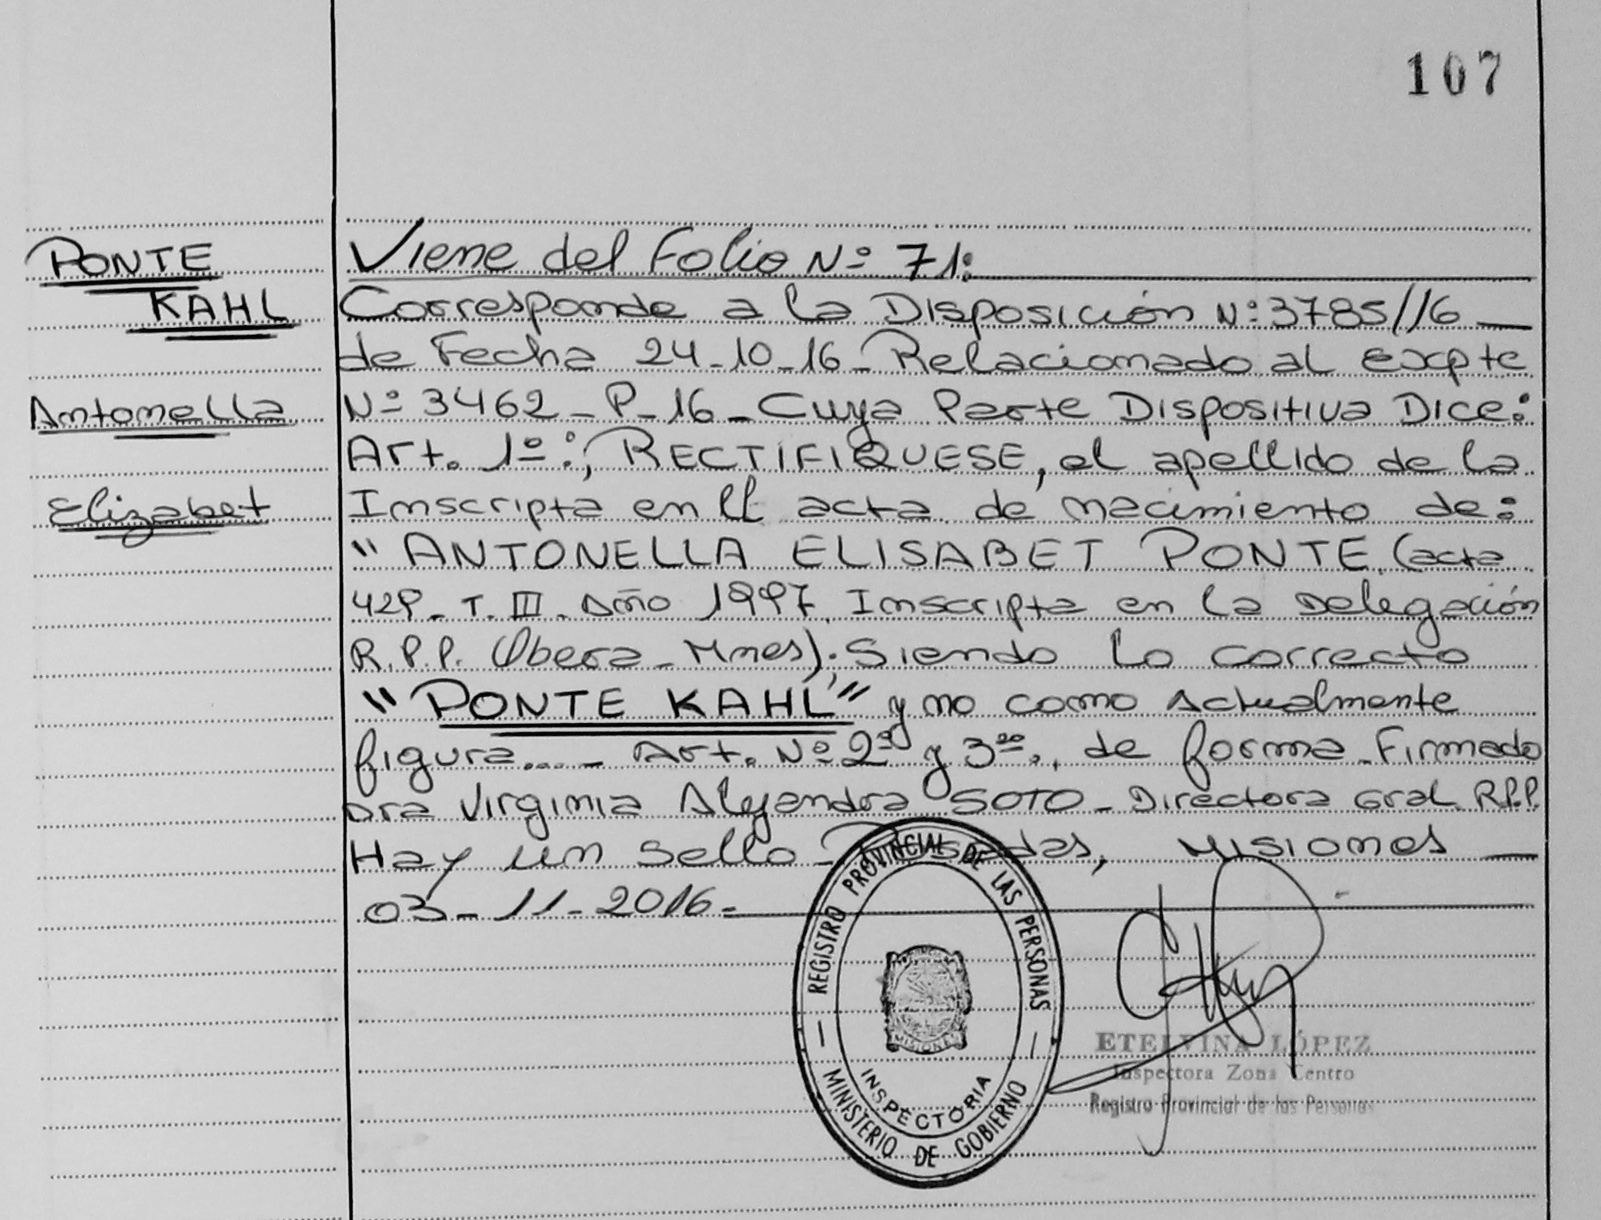 107
PONTE
KAHL
Antonella
Elizabet
Viene del Folio Nº 71:
Corresponde a la Disposición Nº 3785//16
de Fecha 24-10-16- Relacionado al Expte
Nº 3462-P-16- Cuya Parte Dispositiva Dice:
Art. 1º:, RECTIFIQUESE, el apellido de la
Inscripta en el acta de nacimiento de:
"ANTONELLA ELISABET PONTE (acta
429- T. III. Año 1997 Inscripta en la Delegación
R.P.P. Obera- Mnes). Siendo lo correcto
"PONTE KAHL" y no como Actualmente
figura...- Art. Nº 2º y 3º., de forma- Firmado
Dra Virginia Alejandra SOTO- Directora Gral R.P.P.
Hay un Sello- Posadas, Misiones
03-11-2016-
REGISTRO PROVINCIAL DE LAS PERSONAS
MISIONES
INSPECTORIA
MINISTERIO DE GOBIERNO
ETELVINA LÓPEZ
Inspectora Zona Centro
Registro Provincial de las Personas